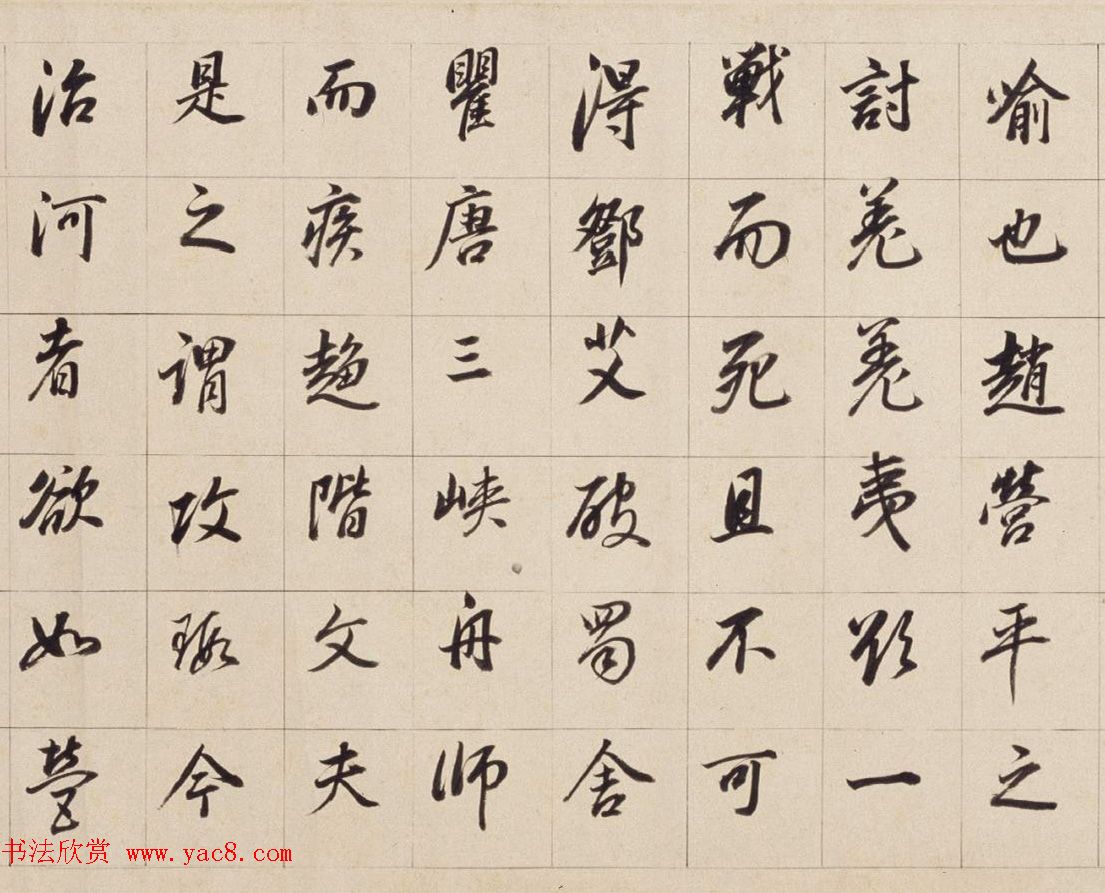 喻也趙營平之
討羌羌夷欲一
戰而死且不可
得鄧艾破蜀舍
瞿唐三峽舟師
而疾趨階文夫
是之謂攻瑕今
治河者欲如營
书法欣赏 www.yac8.com